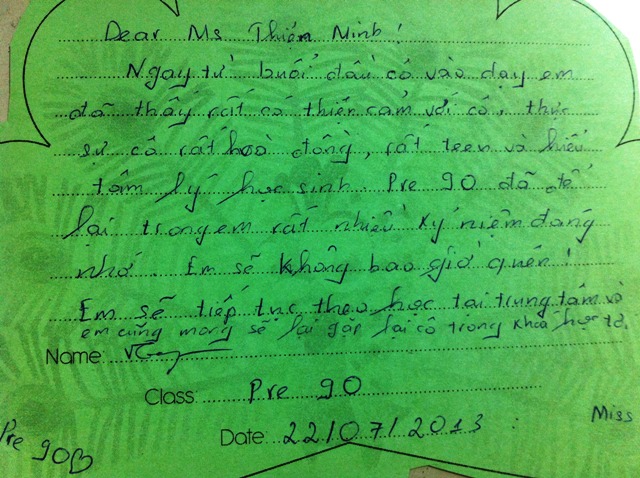 Dear Ms Thiện Minh!
Ngay từ buổi đầu cô vào dạy em
đã thấy rất có thiện cảm với cô, thực
sự cô rất hoà đồng, rất teen và hiểu
tâm lý học sinh. Pre 90 đã để
lại trong em rất nhiều kỷ niệm đáng
nhớ. Em sẽ không bao giờ quên!
Em sẽ tiếp tục theo học tại trung tâm và
em cũng mong sẽ lại gặp lại cô trong khoá học tới.
Name:
Class: Pre 90
Date: 22/07/2013
Miss
Pre 90B